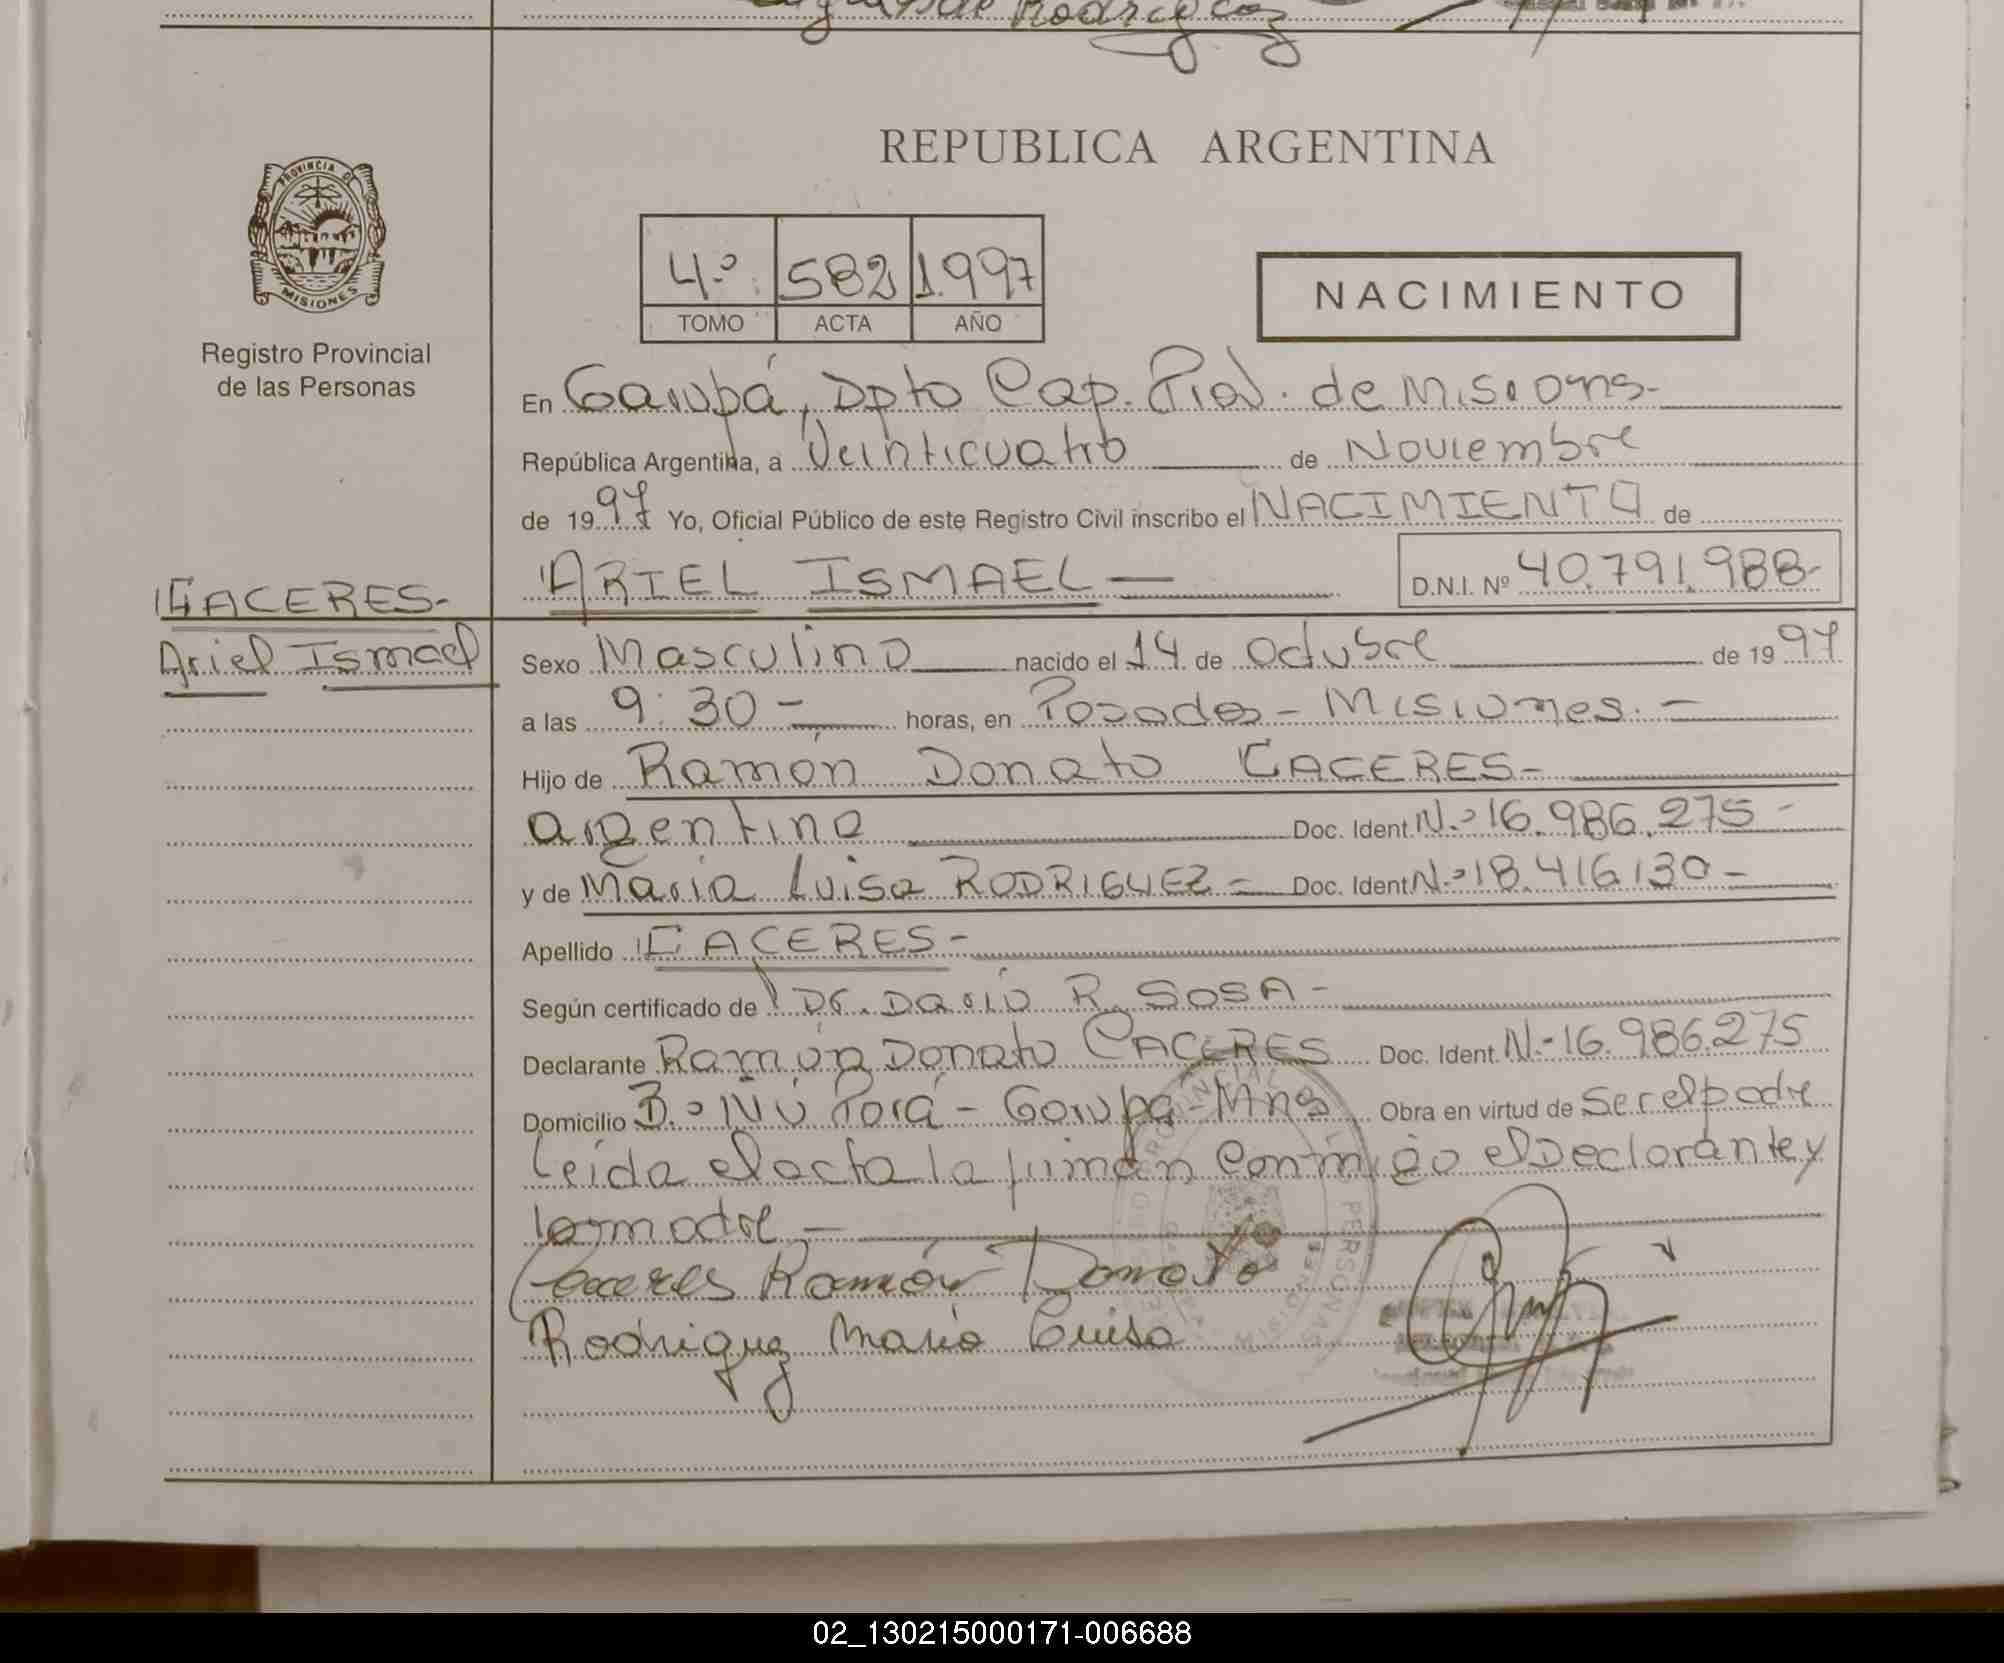 de Rodriguez
REPUBLICA ARGENTINA
PROVINCIA D
MISIONES
Registro Provincial
de las Personas
4º 582 1.997
TOMO ACTA AÑO
NACIMIENTO
En Garupá, Dpto Cap. Pial. de Misiones-
República Argentina, a Veinticuatro de Noviembre
de 1997 Yo, Oficial Público de este Registro Civil inscribo el NACIMIENTO de
ARIEL ISMAEL — D.N.I. Nº 40.791.988-
CACERES-
Ariel Ismael
Sexo Masculino nacido el 14 de Octubre de 1997
a las 9:30 - horas, en Posadas - Misiones. -
Hijo de Ramón Donato CACERES-
argentino Doc. Ident. N.º 16.986.275 -
y de Maria Luisa RODRIGUEZ - Doc. Ident N.º 18.416.130 -
Apellido CACERES-
Según certificado de Dr. Darío R. SOSA -
Declarante Ramón Donato CACERES Doc. Ident. N.- 16.986.275
Domicilio B.º Ñu Porá - Garupa - Mns Obra en virtud de Ser el padre
Leída el acta la firman conmigo el Declarante y
la madre —
Caceres Ramón Donato
Rodriguez Maria Luisa
02_130215000171-006688